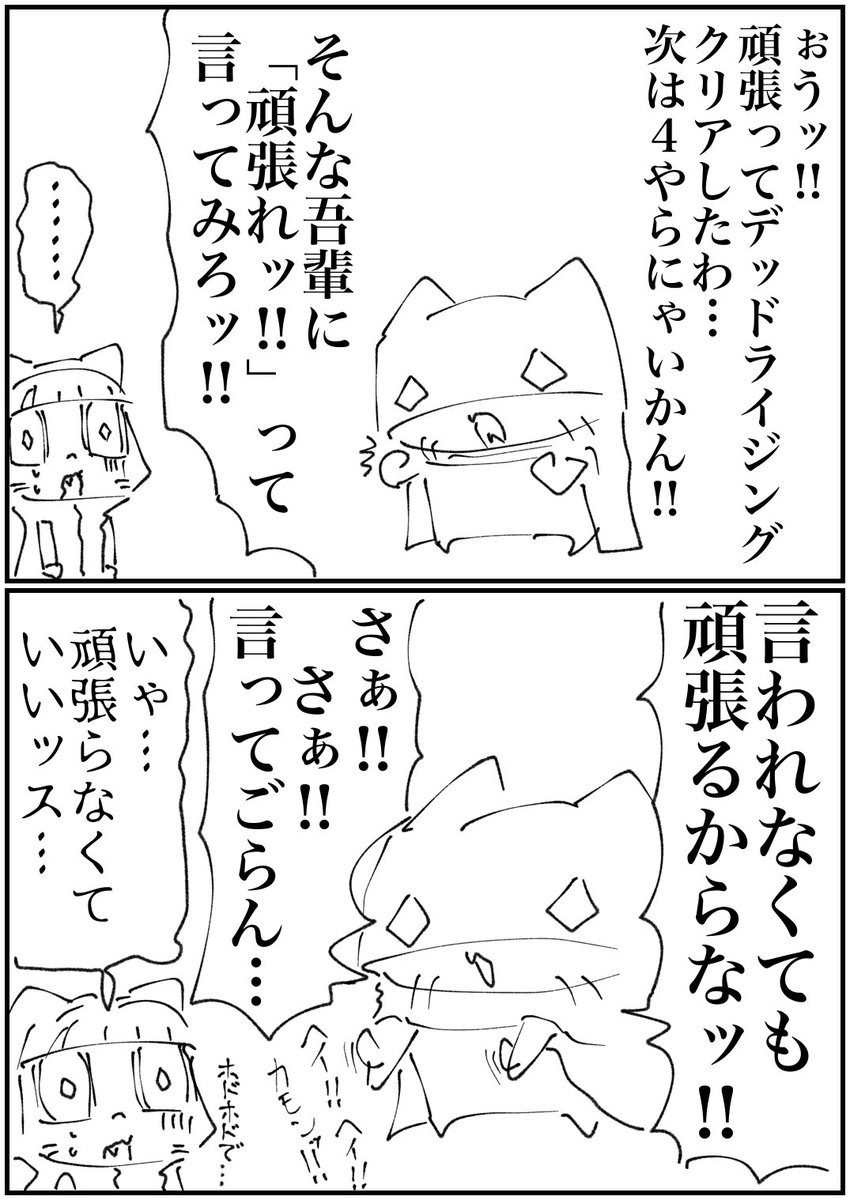 ぉうッ!!
頑張ってデッドライジング
クリアしたわ…
次は４やらにゃいかん!!
そんな吾輩に
「頑張れッ!!」って
言ってみろッ!!
……
言われなくても
頑張るからなッ!!
さぁ!!
さぁ!!
言ってごらん…
ヘイ!!
カモンッ!!
ヘイ!!
いゃ…
頑張らなくて
いいッス…
ホドホドで…